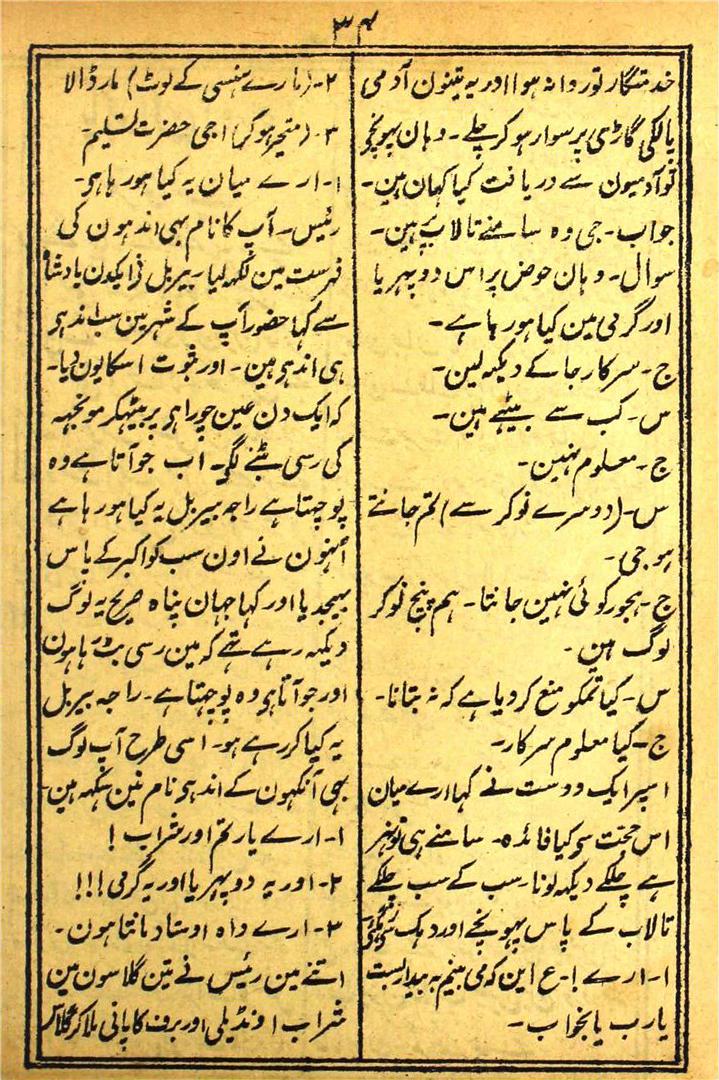 ۳۴
خدمتگار تو روانہ ہوا اور یہ تینون آدمی
پالکی گاڑی پر سوار ہو کر چلے۔ وہان پہونچے
تو آدمیون سے دریافت کیا کہان ہین۔
جواب۔ جی وہ سامنے تالاب پر ہین۔
سوال۔ وہان حوض پر اس دوپہریا
اور گرمی مین کیا ہو رہا ہے۔
ج۔ سرکار جا کے دیکھ لین۔
س۔ کب سے بیٹھے ہین۔
ج۔ معلوم نہین۔
س۔ (دوسرے نوکر سے) تم جانتے
ہو جی۔
ج۔ ہجور کوئی نہین جانتا۔ ہم پنچ نوکر
لوگ ہین۔
س۔ کیا تمکو منع کر دیا ہے کہ نہ بتانا۔
ج۔ کیا معلوم سرکار۔
اسپر ایک دوست نے کہا ارے میان
اس حجت سے کیا فائدہ۔ سامنے ہی تو نہر
ہے چلکے دیکھ لو نا۔ سب کے سب چلکے
تالاب کے پاس پہونچے اور دہک
۱۔ ارے! ع این کہ می بینم بہ بیداریست
یارب یا بخواب۔
۲۔ (مارے ہنسی کے لوٹ) مار ڈالا
۳۔ (متحیر ہو کر) اجی حضرت تسلیم۔
۱۔ ارے میان یہ کیا ہو رہا ہی۔
رئیس۔ آپ کا نام بھی اندہون کی
فہرست مین لکھ لیا۔ بیربل نے ایکدن بادشاہ
سے کہا حضور آپ کے شہر مین سب اندہی
ہی اندہی ہین۔ اور ثبوت اسکا یون دیا۔
کہ ایک دن عین چوراہی پر بیٹھکر مونجھ
کی رسی بٹنے لگے۔ اب جو آتا ہے وہ
پوچھتا ہے راجہ بیربل یہ کیا ہو رہا ہے
انہون نے اون سب کو اکبر کے پاس
بھیجدیا اور کہا جہان پناہ صریح یہ لوگ
دیکھ رہے تھے کہ مین رسی بٹ رہا ہون
اور جو آتا ہی وہ پوچھتا ہے۔ راجہ بیربل
یہ کیا کر رہے ہو۔ اسی طرح آپ لوگ
بھی آنکھون کے اندہی نام نین سکھ ہین۔
۱۔ ارے یار تم اور شراب!
۲۔ اور یہ دوپہریا اور یہ گرمی!!!
۳۔ ارے واہ اوستاد مانتا ہون۔
اتنے مین رئیس نے تین گلاسون مین
شراب اونڈیلی اور برف کا پانی ملا کر گلاس